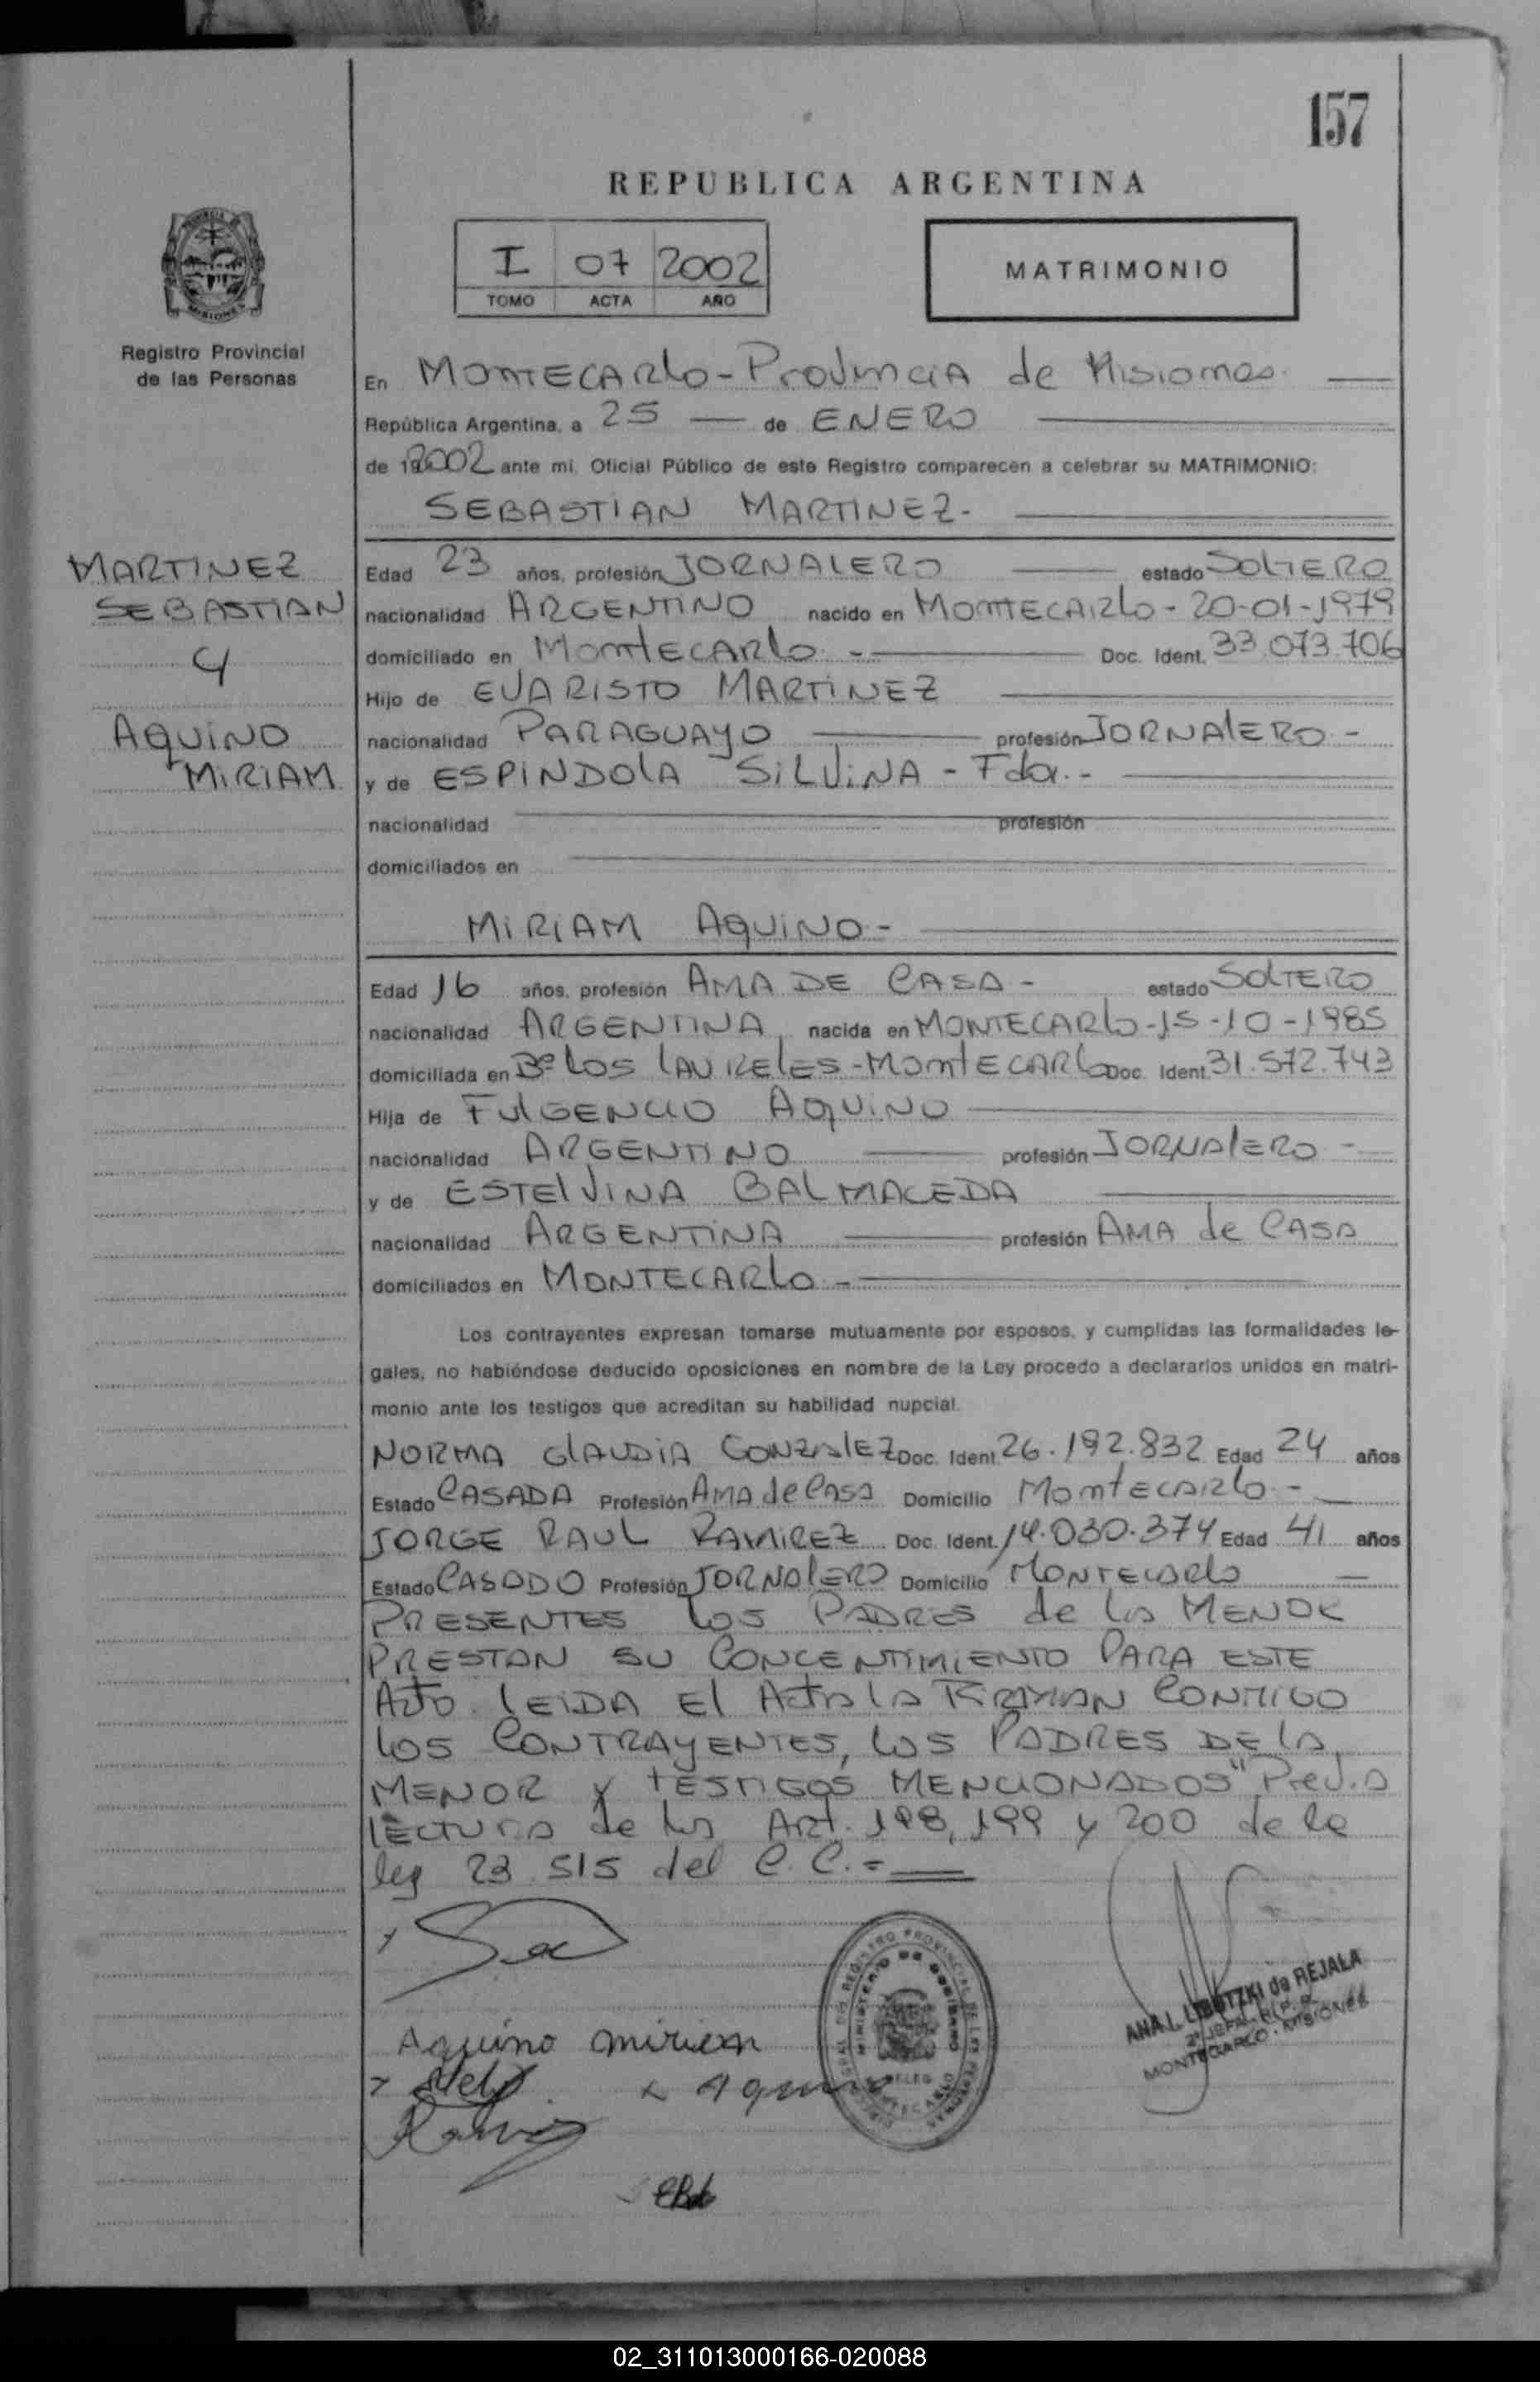 157
REPUBLICA ARGENTINA
I 07 2002
TOMO ACTA AÑO
MATRIMONIO
Registro Provincial
de las Personas
En MONTECARLO - PROVINCIA de Misiones
República Argentina, a 25 de ENERO
de 2002 ante mí, Oficial Público de este Registro comparecen a celebrar su MATRIMONIO:
SEBASTIAN MARTINEZ.
MARTINEZ
SEBASTIAN
Y
AQUINO
MIRIAM
Edad 23 años, profesión JORNALERO estado SOLTERO
nacionalidad ARGENTINO nacido en MONTECARLO - 20-01-1979
domiciliado en MONTECARLO - Doc. Ident. 33.073.706
Hijo de EVARISTO MARTINEZ
nacionalidad PARAGUAYO profesión JORNALERO -
y de ESPINDOLA SILVINA - Fda. -
nacionalidad profesión
domiciliados en
MIRIAM AQUINO -
Edad 16 años, profesión AMA DE CASA - estado SOLTERO
nacionalidad ARGENTINA nacida en MONTECARLO - 15-10-1985
domiciliada en Bº LOS LAURELES - MONTECARLO Doc. Ident. 31.572.743
Hija de FULGENCIO AQUINO
nacionalidad ARGENTINO profesión JORNALERO -
y de ESTELVINA BALMACEDA
nacionalidad ARGENTINA profesión AMA de CASA
domiciliados en MONTECARLO -
Los contrayentes expresan tomarse mutuamente por esposos, y cumplidas las formalidades le-
gales, no habiéndose deducido oposiciones en nombre de la Ley procedo a declararlos unidos en matri-
monio ante los testigos que acreditan su habilidad nupcial.
NORMA CLAUDIA GONZALEZ Doc. Ident. 26.192.832 Edad 24 años
Estado CASADA Profesión AMA de CASA Domicilio MONTECARLO -
JORGE RAUL RAMIREZ Doc. Ident. 14.030.374 Edad 41 años
Estado CASADO Profesión JORNALERO Domicilio MONTECARLO
PRESENTES LOS PADRES de la MENOR
PRESTAN SU CONCENTIMIENTO PARA ESTE
ACTO. LEIDA El Acta la FIRMAN CONMIGO
LOS CONTRAYENTES, LOS PADRES DE LA
MENOR Y TESTIGOS MENCIONADOS "Previa
lectura de los Art. 198, 199 y 200 de la
ley 23.515 del C.C. =
Aquino Miriam
x Aquino
REGISTRO PROVINCIAL DE LAS PERSONAS
MINISTERIO DE GOBIERNO
ANA L. LIBUTZKI de REJALA
MONTECARLO - MISIONES
02_311013000166-020088